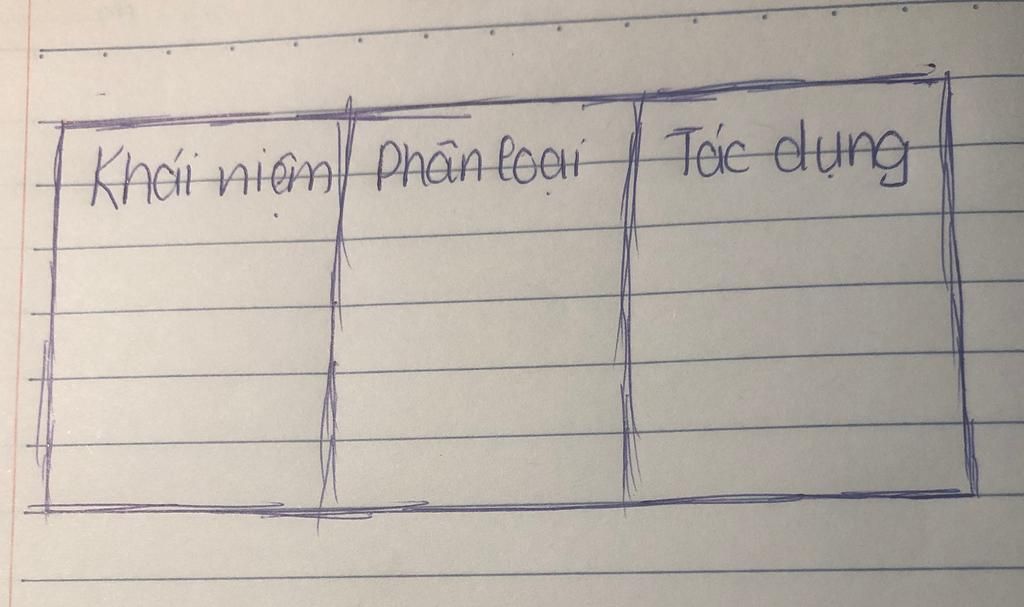 Khái niệm Phân loại Tác dụng